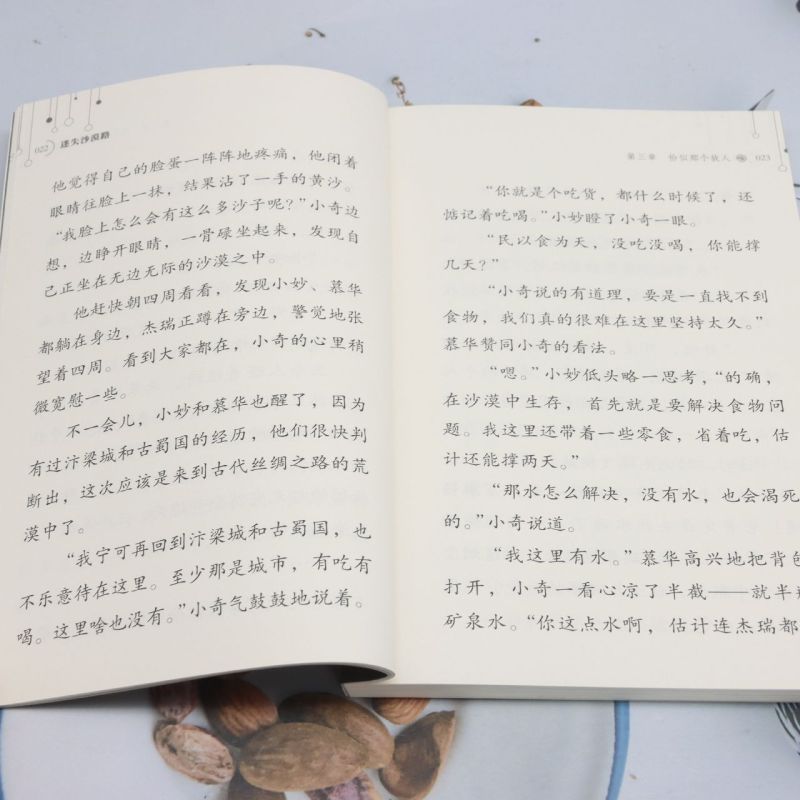 022 迷失沙漠路
他觉得自己的脸蛋一阵阵地疼痛，他闭着
眼睛往脸上一抹，结果沾了一手的黄沙。
“我脸上怎么会有这么多沙子呢？”小奇边
想，边睁开眼睛，一骨碌坐起来，发现自
己正坐在无边无际的沙漠之中。
他赶快朝四周看看，发现小妙、慕华
都躺在身边，杰瑞正蹲在旁边，警觉地张
望着四周。看到大家都在，小奇的心里稍
微宽慰一些。
不一会儿，小妙和慕华也醒了，因为
有过汴梁城和古蜀国的经历，他们很快判
断出，这次应该是来到古代丝绸之路的荒
漠中了。
“我宁可再回到汴梁城和古蜀国，也
不乐意待在这里。至少那是城市，有吃有
喝。这里啥也没有。”小奇气鼓鼓地说着。
第三章 恰似那个故人 023
“你就是个吃货，都什么时候了，还
惦记着吃喝。”小妙瞪了小奇一眼。
“民以食为天，没吃没喝，你能撑
几天？”
“小奇说的有道理，要是一直找不到
食物，我们真的很难在这里坚持太久。”
慕华赞同小奇的看法。
“嗯。”小妙低头略一思考，“的确，
在沙漠中生存，首先就是要解决食物问
题。我这里还带着一些零食，省着吃，估
计还能撑两天。”
“那水怎么解决，没有水，也会渴死
的。”小奇说道。
“我这里有水。”慕华高兴地把背包
打开，小奇一看心凉了半截——就半瓶
矿泉水。“你这点水啊，估计连杰瑞都